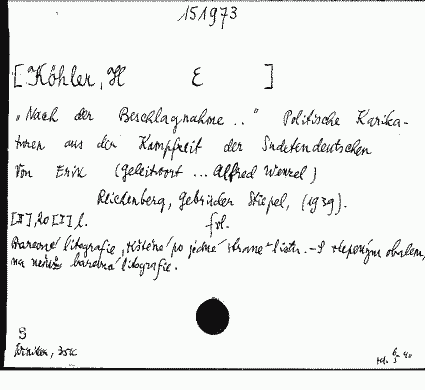 151973
[Köhler, H E ]
"Nach der Beschlagnahme .." Politische Karika-
turen aus der Kampfzeit der Sudetendeutschen
Von Erik (Geleitwort ... Alfred Wenzel)
Reichenberg, Gebrüder Stiepel, (1939).
[II], 20 [I] l. fol.
Barevné litografie, tištěné po jedné straně listu. - S obalem,
na němž barevná litografie.
S
35K